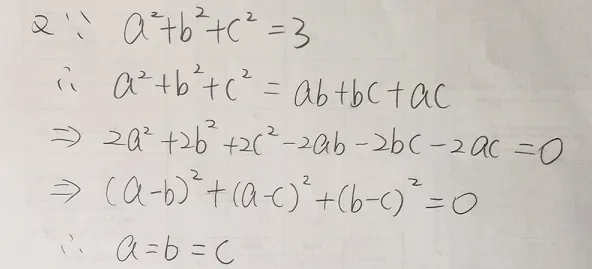 又∵ a²+b²+c²=3
∴ a²+b²+c²=ab+bc+ac
⇒ 2a²+2b²+2c²-2ab-2bc-2ac=0
⇒ (a-b)²+(a-c)²+(b-c)²=0
∴ a=b=c